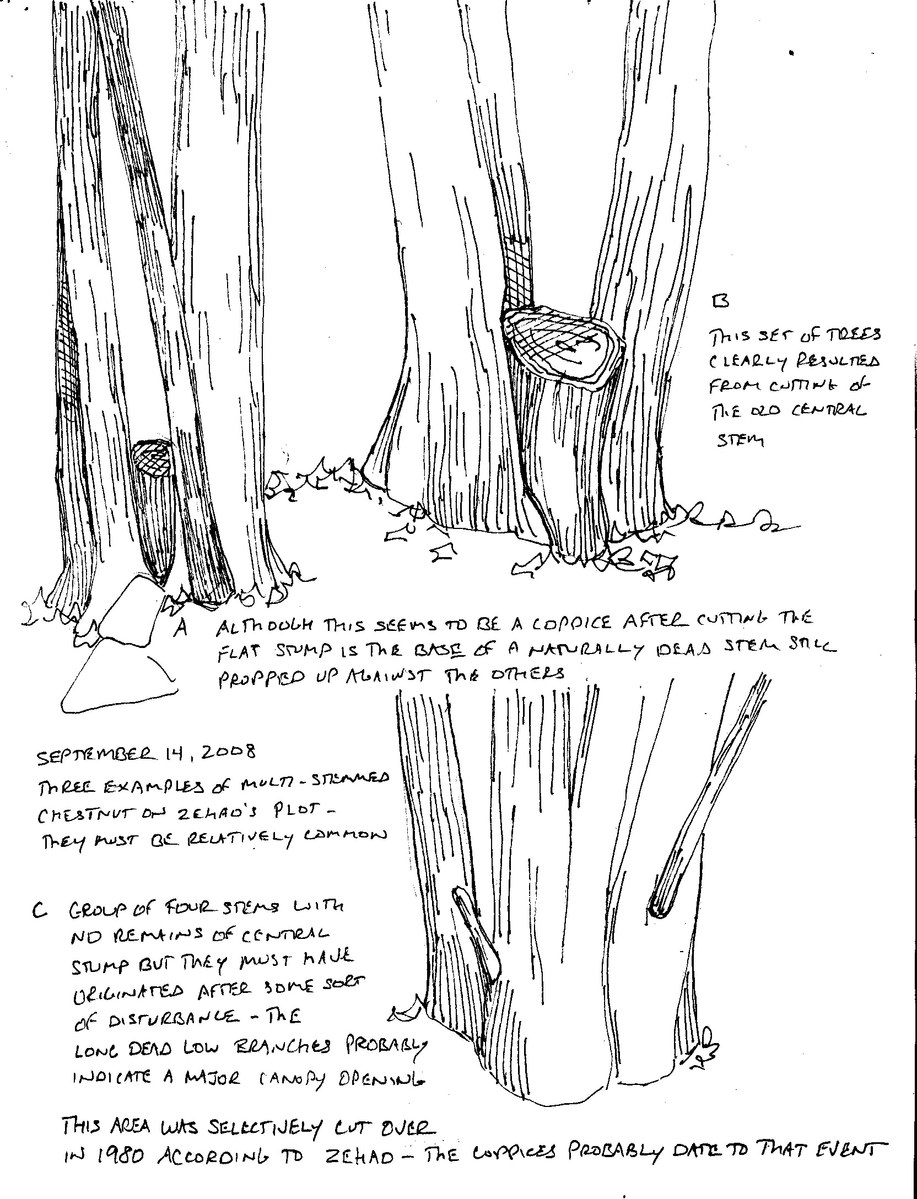 B
THIS SET OF TREES
CLEARLY RESULTED
FROM CUTTING OF
THE OLD CENTRAL
STEM
A ALTHOUGH THIS SEEMS TO BE A COPPICE AFTER CUTTING THE
FLAT STUMP IS THE BASE OF A NATURALLY DEAD STEM STILL
PROPPED UP AGAINST THE OTHERS
SEPTEMBER 14, 2008
THREE EXAMPLES OF MULTI-STEMMED
CHESTNUT ON ZEHAD'S PLOT -
THEY MUST BE RELATIVELY COMMON
C GROUP OF FOUR STEMS WITH
NO REMAINS OF CENTRAL
STUMP BUT THEY MUST HAVE
ORIGINATED AFTER SOME SORT
OF DISTURBANCE - THE
LONG DEAD LOW BRANCHES PROBABLY
INDICATE A MAJOR CANOPY OPENING
THIS AREA WAS SELECTIVELY CUT OVER
IN 1980 ACCORDING TO ZEHAD - THE COPPICES PROBABLY DATE TO THAT EVENT